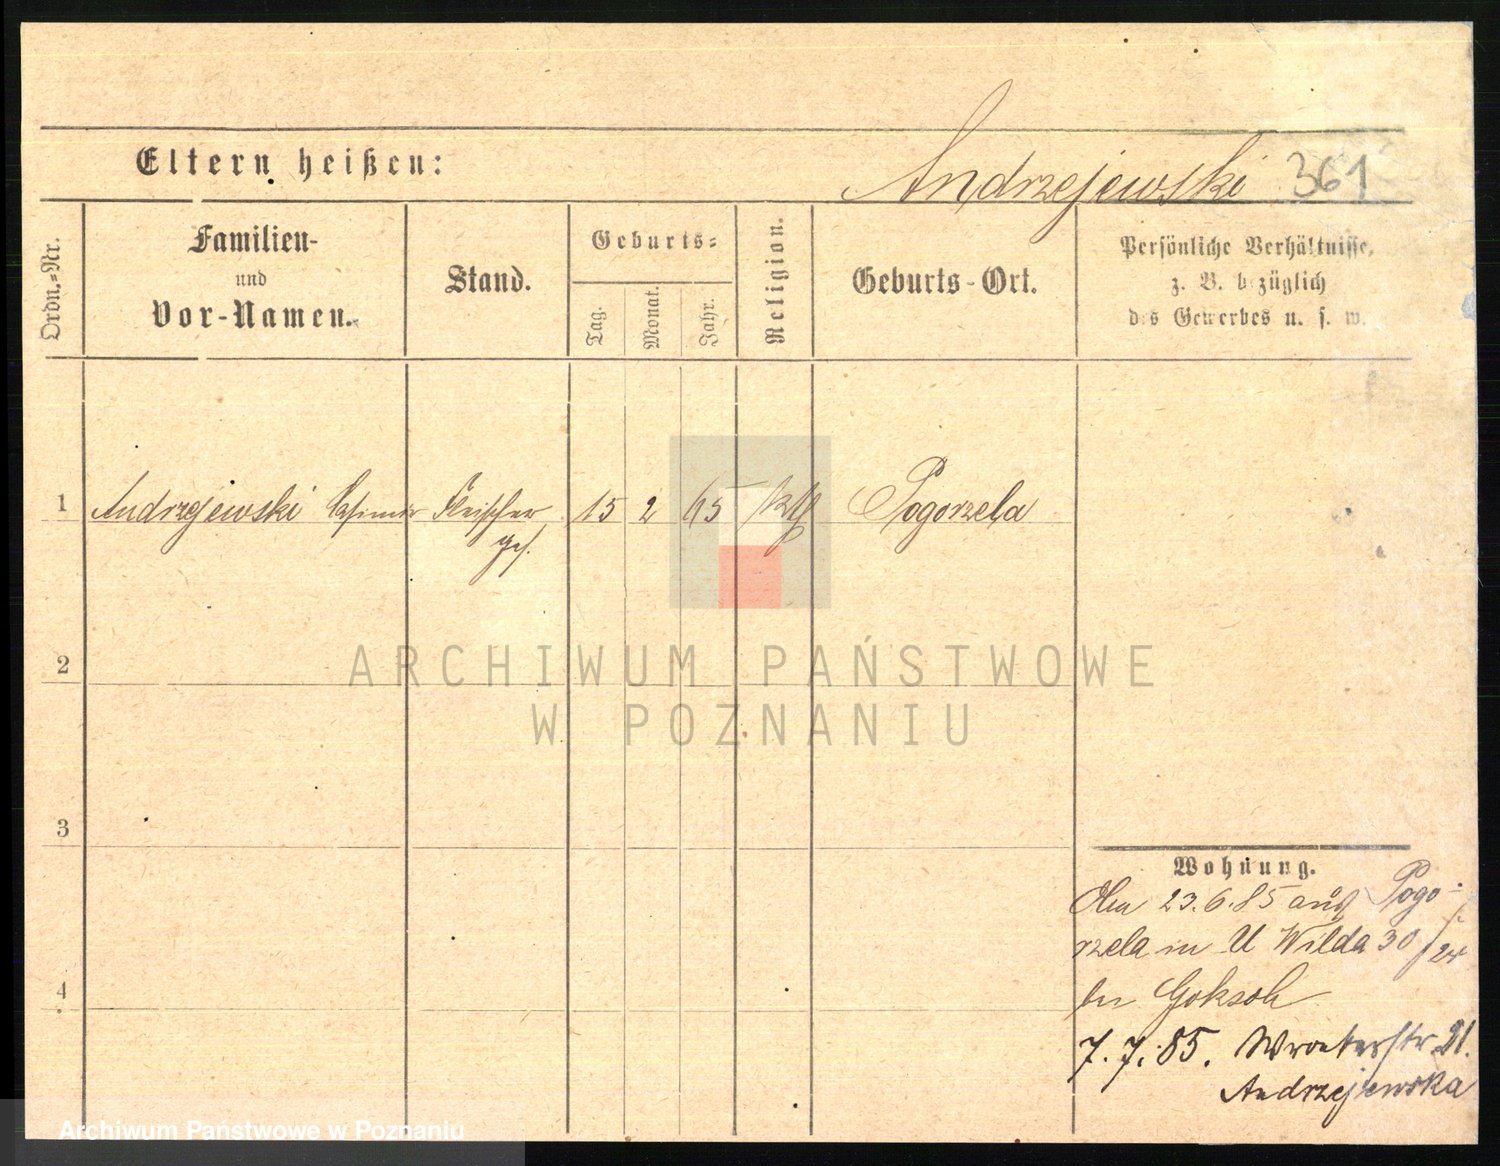 Eltern heißen:
Andrzejewski 361
Ordn.=Nr.
Familien-
und
Vor-Namen.
Stand.
Geburts=
Tag.
Monat.
Jahr.
Religion.
Geburts-Ort.
Persönliche Verhältnisse,
z. B. bezüglich
des Gewerbes u. s. w.
1 Andrzejewski Casimir Fleischer 15 2 65 kth Pogorzela
ges.
ARCHIWUM PAŃSTWOWE
W POZNANIU
2
3
4
Wohnung.
23.6.85 aus Pogo-
rzela in U Wilda 30 / 24
bei
7.7.85. 21.
Andrzejewska
Archiwum Państwowe w Poznaniu